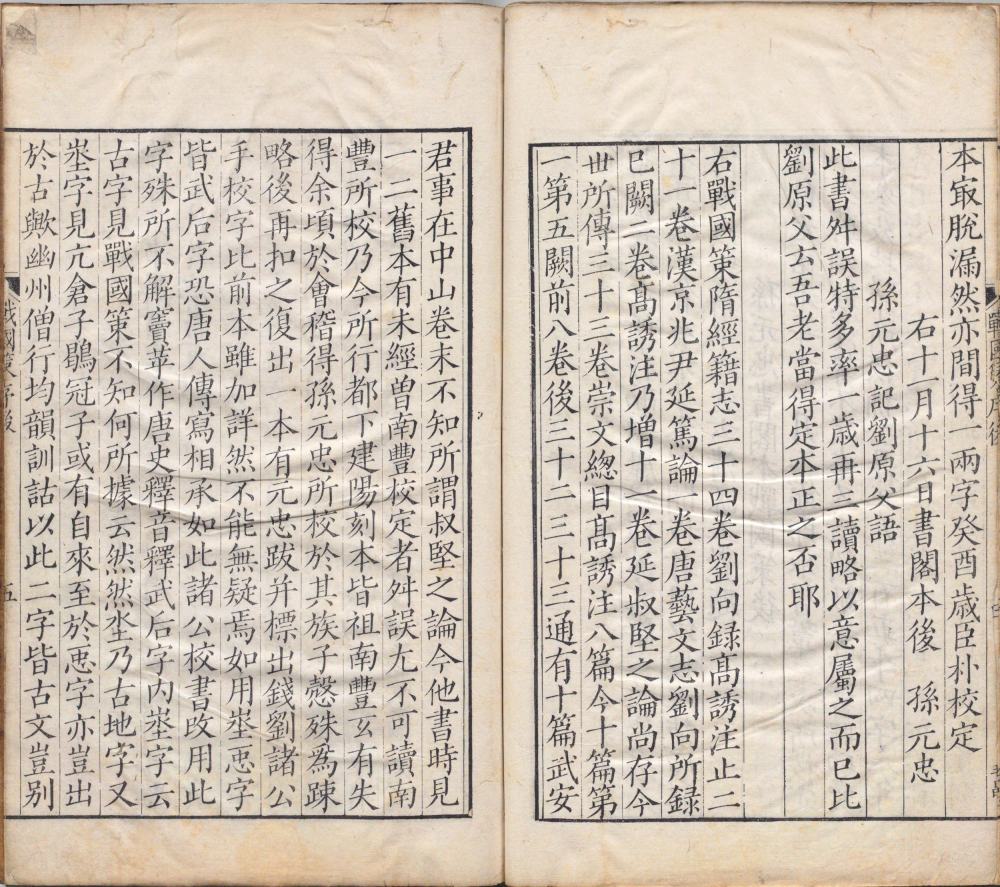 本㝡脫漏然亦間得一兩字癸酉歳臣朴校定
右十一月十六日書閣本後　孫元忠
孫元忠記劉原父語
此書舛誤特多率一歳再三讀略以意屬之而已比
劉原父云吾老當得定本正之否耶
右戰國策隋經籍志三十四卷劉向録髙誘注止二
十一卷漢京兆尹延篤論一卷唐藝文志劉向所録
已闕二卷髙誘注乃增十一卷延叔堅之論尚存今
丗所傳三十三卷崇文緫目髙誘注八篇今十篇第
一第五闕前八卷後三十二三十三通有十篇武安
君事在中山卷末不知所謂叔堅之論今他書時見
一二舊本有未經曾南豐校定者舛誤尤不可讀南
豐所校乃今所行都下建陽刻本皆祖南豐玄有失
得余頃於會稽得孫元忠所校於其族子慤殊為踈
略後再扣之復出一本有元忠跋并標出錢劉諸公
手校字比前本雖加詳然不能無疑焉如用埊恧字
皆武后字恐唐人傳寫相承如此諸公校書改用此
字殊所不解竇苹作唐史釋音釋武后字内埊字云
古字見戰國策不知何所據云然然坔乃古地字又
埊字見亢倉子鶡冠子或有自來至於恧字亦豈出
於古歟幽州僧行均韻訓詁以此二字皆古文豈別
戰國策序後
五